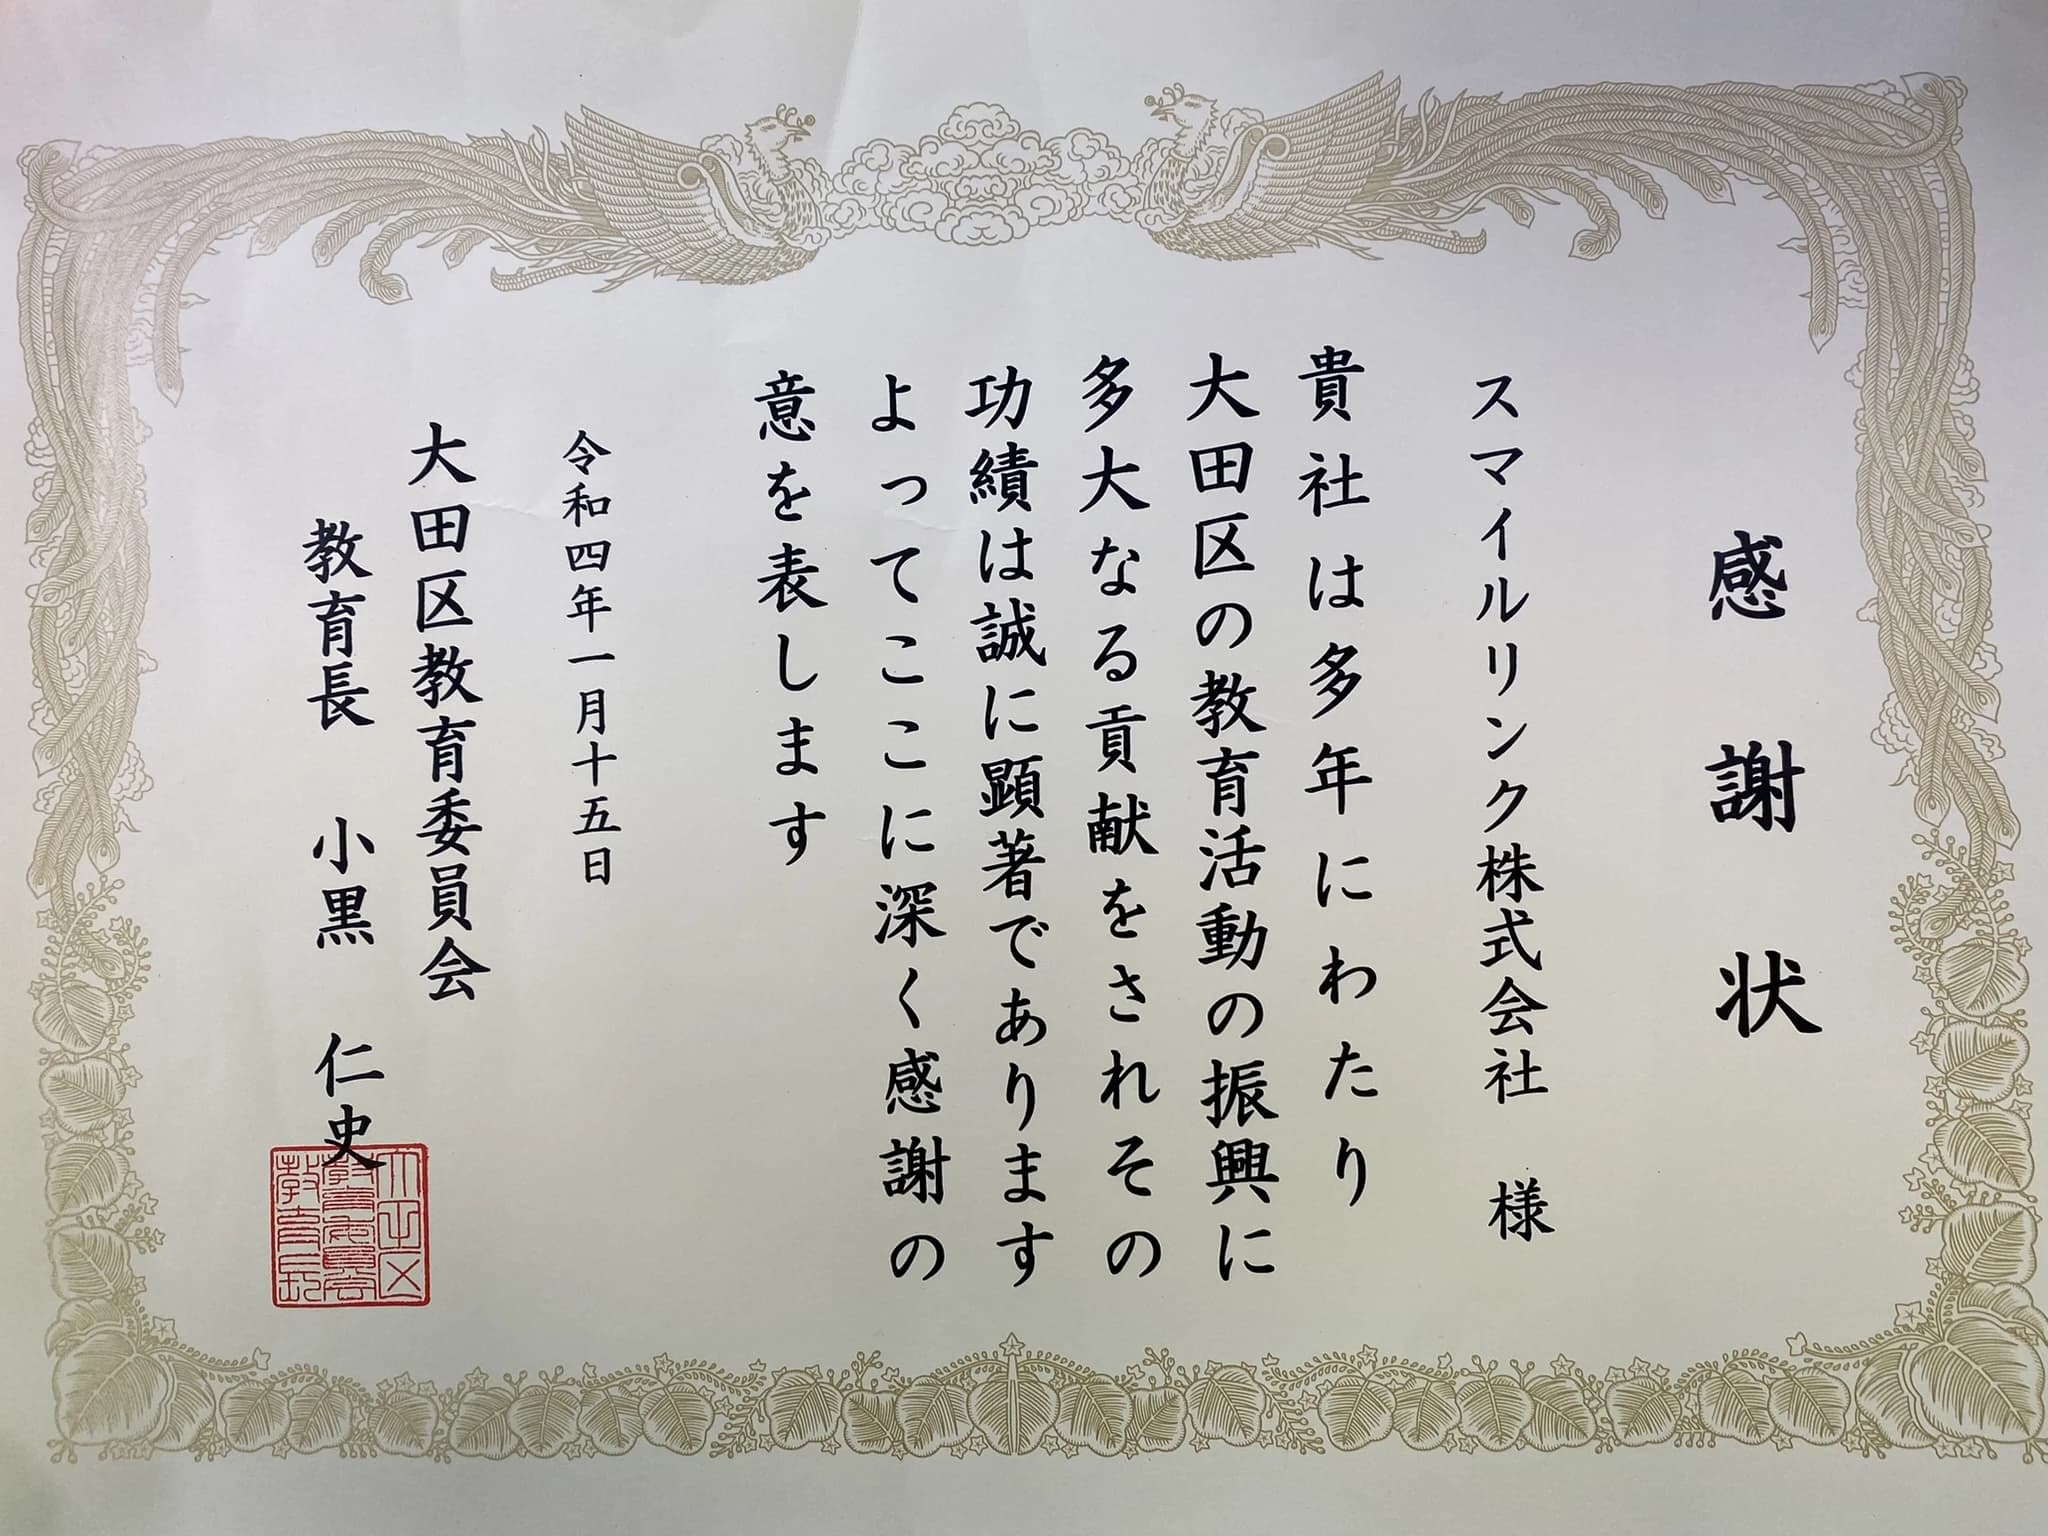 感謝状
スマイルリンク株式会社 様
貴社は多年にわたり
大田区の教育活動の振興に
多大なる貢献をされその
功績は誠に顕著であります
よってここに深く感謝の
意を表します
令和四年一月十五日
大田区教育委員会
教育長 小黒 仁史
大田区
教育委員会
教育長印